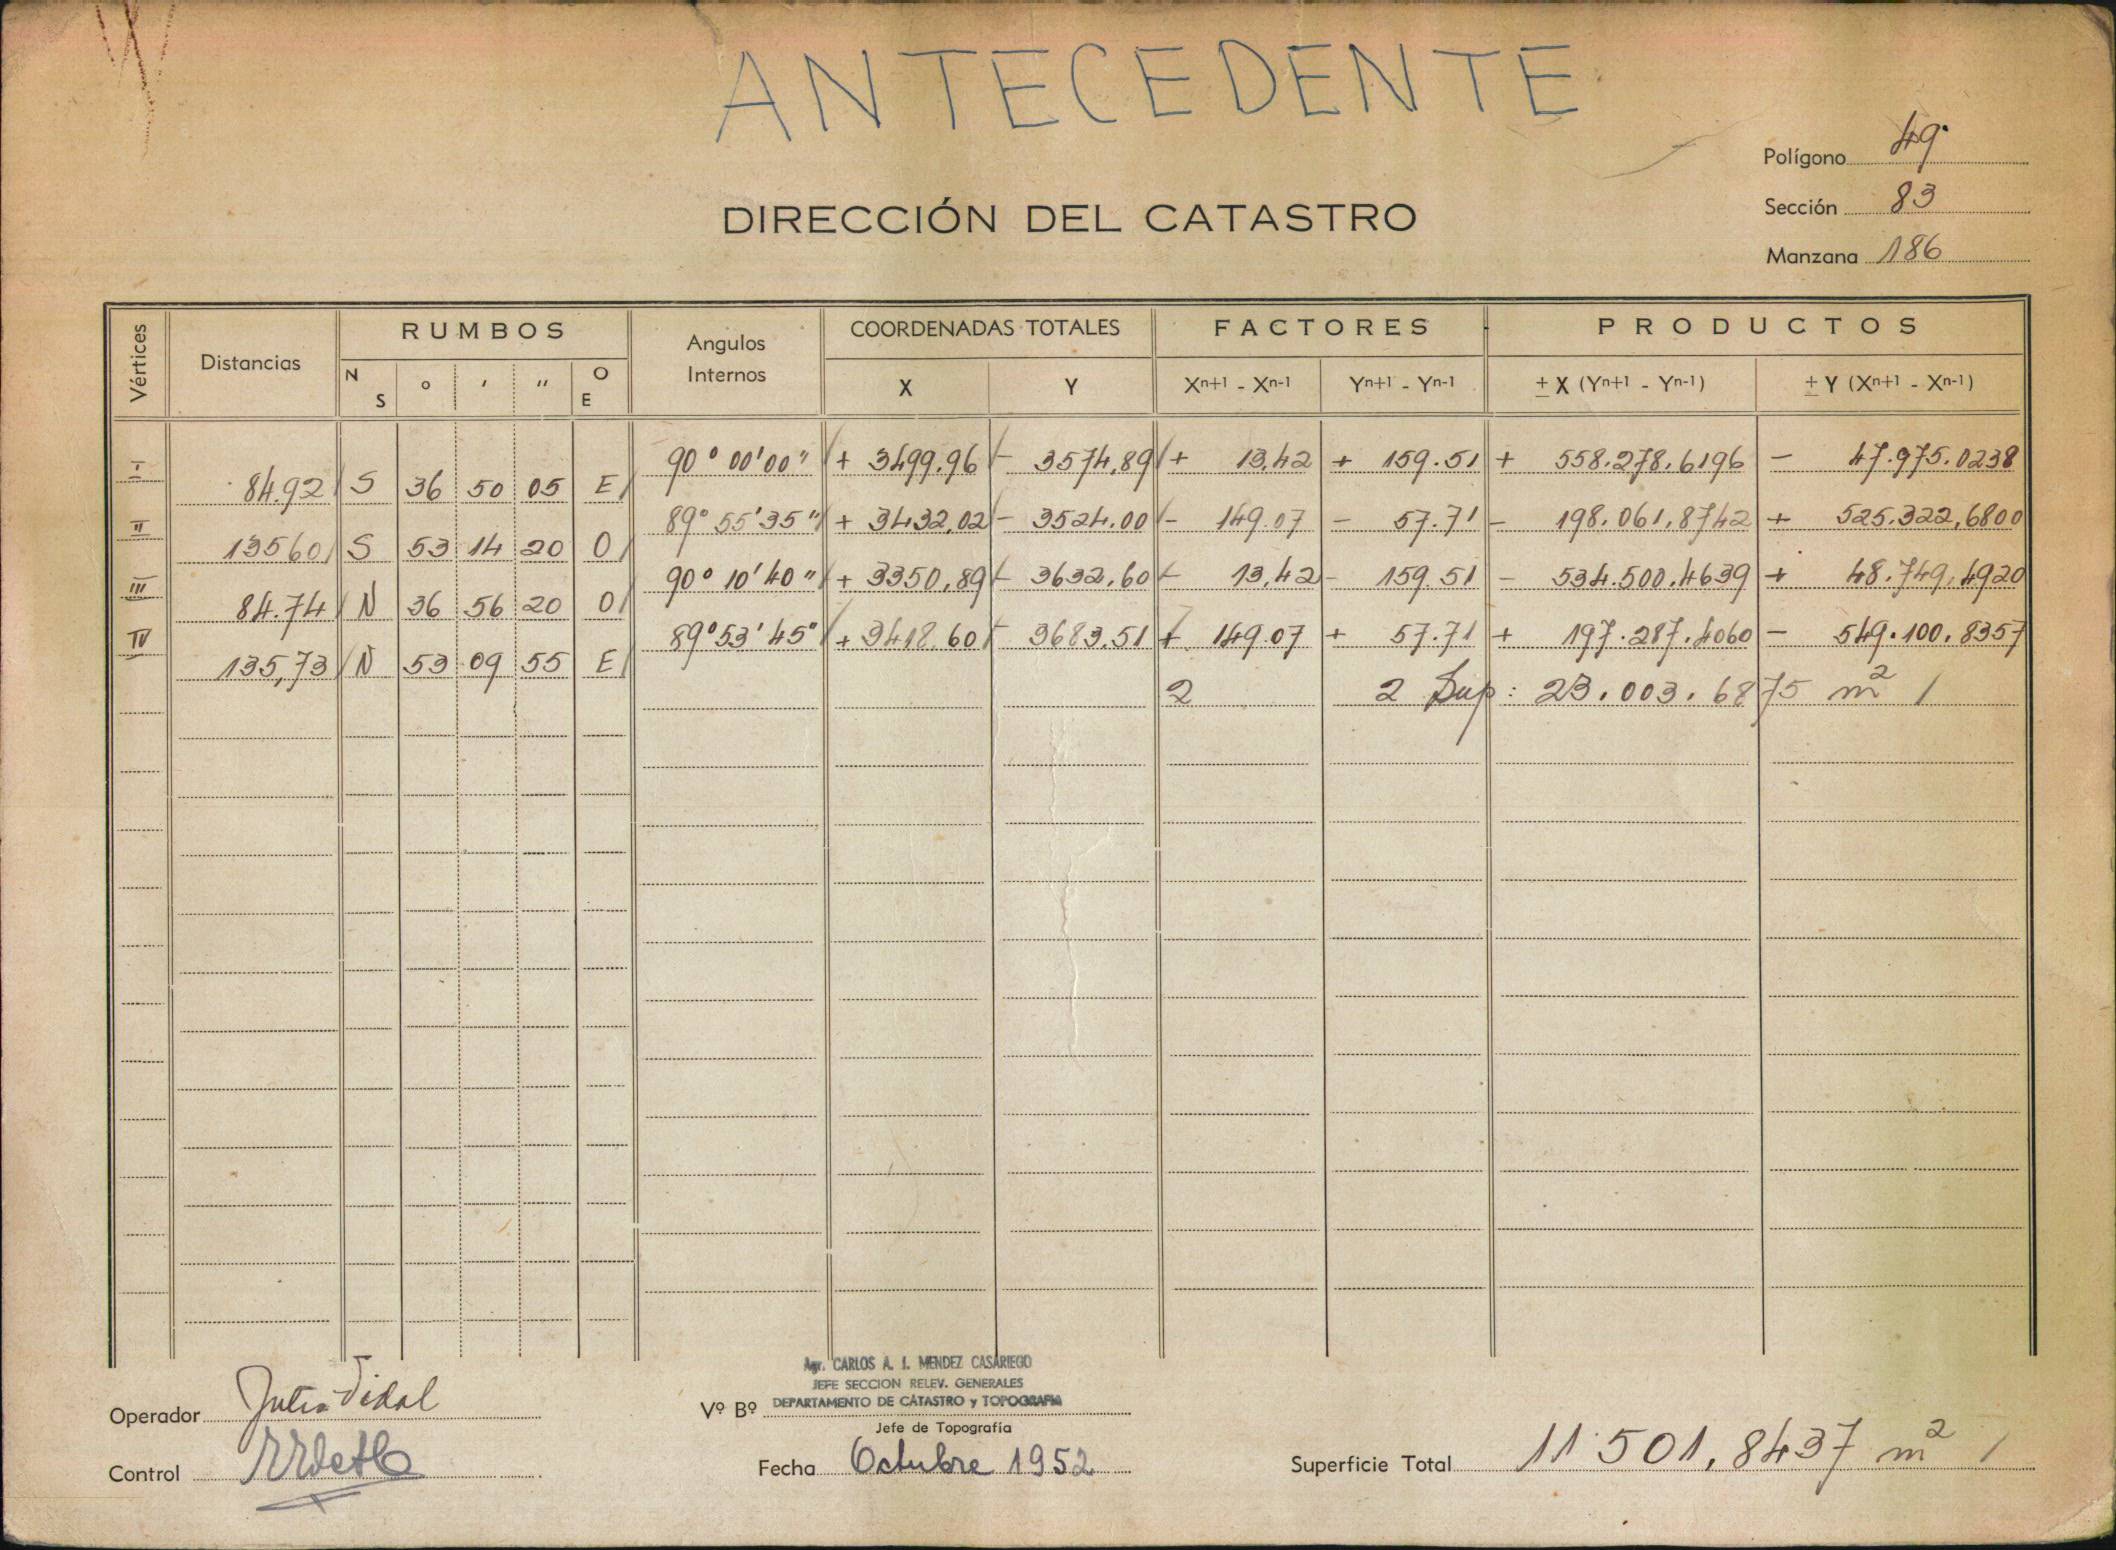 ANTECEDENTE
Polígono 49
DIRECCIÓN DEL CATASTRO
Sección 83
Manzana 186
Vértices Distancias RUMBOS Angulos Internos COORDENADAS TOTALES FACTORES PRODUCTOS
N S ° ′ ″ O E X Y Xn+1 - Xn-1 Yn+1 - Yn-1 ± X (Yn+1 - Yn-1) ± Y (Xn+1 - Xn-1)
I 90° 00' 00" + 3499,96 - 3574,89 + 13,42 + 159.51 + 558.278,6196 - 47.975.0238
84.92 S 36 50 05 E
II 89° 55' 35" + 3432,02 - 3524.00 - 149.07 - 57.71 - 198.061,8742 + 525.322,6800
135 60 S 53 14 20 O
III 90° 10' 40" + 3350,89 - 3632.60 - 13,42 - 159.51 - 534.500.4639 + 48.749,4920
84.74 N 36 56 20 O
IV 89° 53' 45" + 3418.60 - 3683.51 + 149.07 + 57.71 + 197.287.4060 - 549.100.8357
135,73 N 53 09 55 E
2 2 Sup: 23.003.6875 m²
Agr. CARLOS A. I. MENDEZ CASARIEGO
JEFE SECCION RELEV. GENERALES
DEPARTAMENTO DE CATASTRO y TOPOGRAFIA
Operador Vidal Vº Bº
Jefe de Topografía
Control Fecha Octubre 1952 Superficie Total 11 501,8437 m²